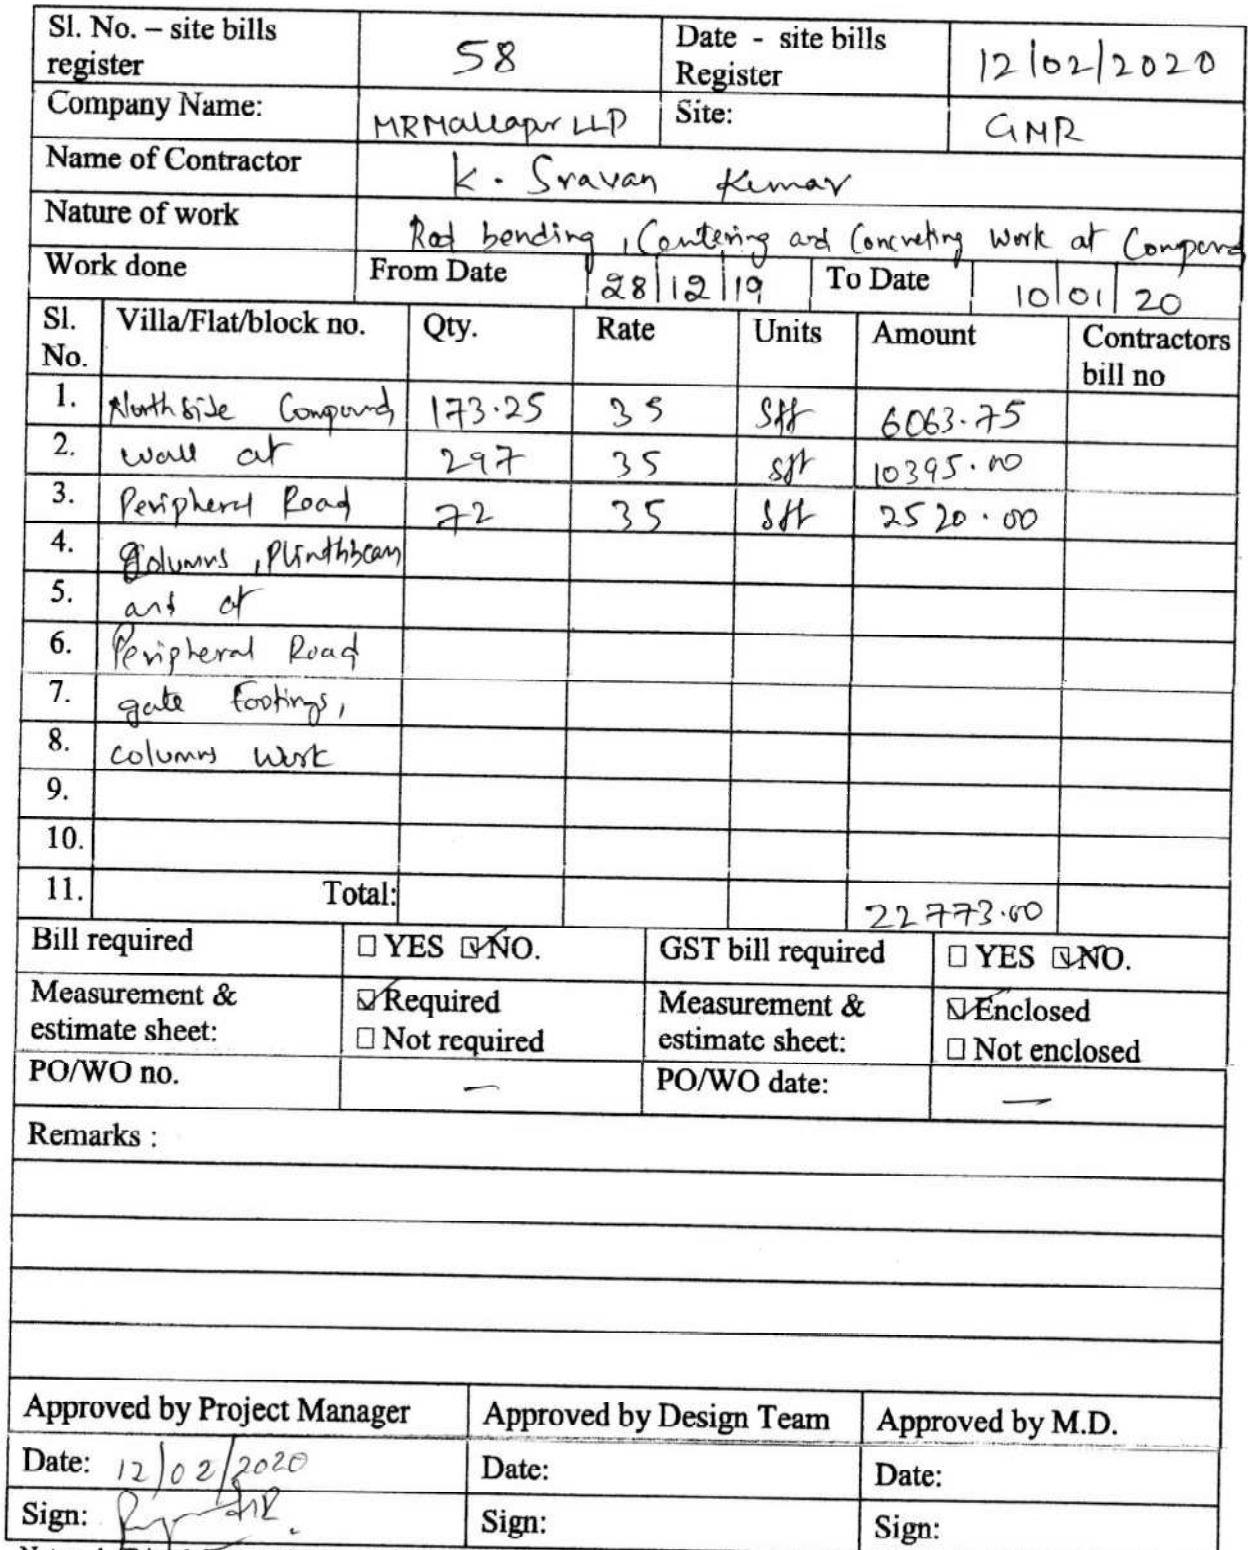 Sl. No. – site bills register 58 Date - site bills Register 12/02/2020
Company Name: MRMallapur LLP Site: GMR
Name of Contractor K. Sravan Kumar
Nature of work Rod bending, Centering and Concreting Work at Compound
Work done From Date 28/12/19 To Date 10/01/20
Sl. No. Villa/Flat/block no. Qty. Rate Units Amount Contractors bill no
1. North Side Compound 173.25 35 Sft 6063.75
2. wall at 297 35 sft 10395.00
3. Peripheral Road 72 35 Sft 2520.00
4. Columns, Plinthbeam
5. and at
6. Peripheral Road
7. gate footings,
8. columns Work
9.
10.
11. Total: 22773.00
Bill required ☐ YES ☑ NO. GST bill required ☐ YES ☑ NO.
Measurement & estimate sheet: ☑ Required ☐ Not required Measurement & estimate sheet: ☑ Enclosed ☐ Not enclosed
PO/WO no. — PO/WO date: —
Remarks :
Approved by Project Manager Approved by Design Team Approved by M.D.
Date: 12/02/2020 Date: Date:
Sign: Sign: Sign: